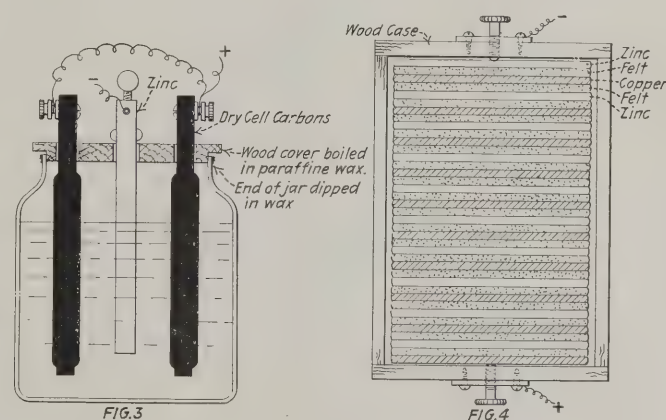 +
-
Zinc
Dry Cell Carbons
Wood cover boiled
in paraffine wax.
End of jar dipped
in wax
FIG.3
Wood Case
-
Zinc
Felt
Copper
Felt
Zinc
+
FIG.4